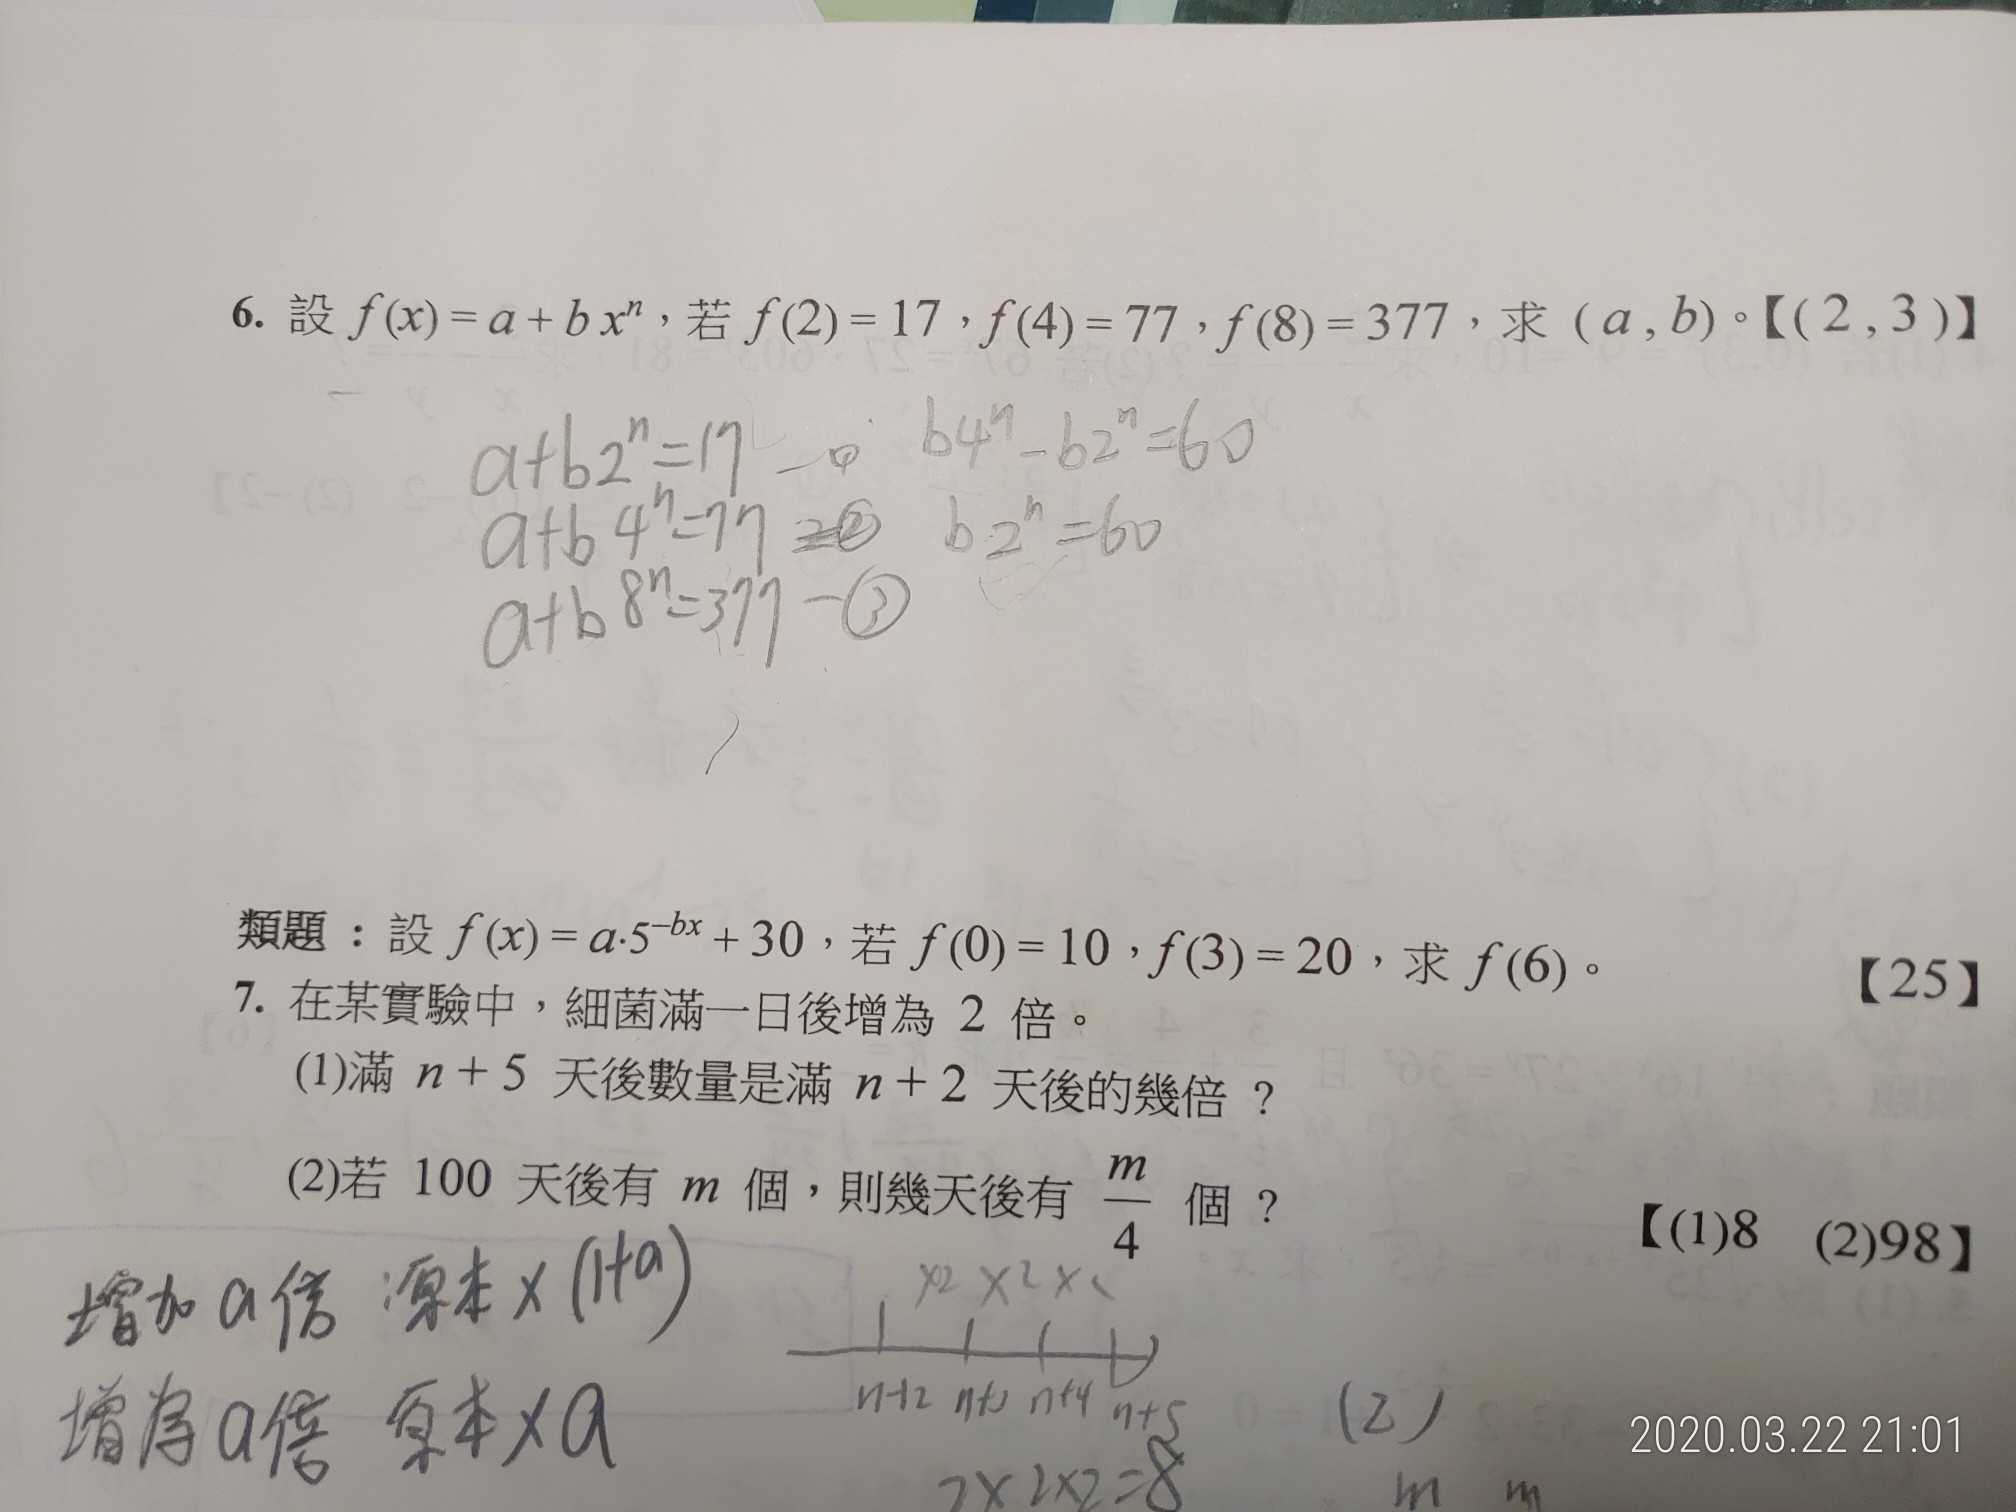 6. 設 f(x) = a + b xⁿ，若 f(2) = 17，f(4) = 77，f(8) = 377，求 (a , b)。【(2 , 3)】
a+b2ⁿ=17 b4ⁿ-b2ⁿ=60
a+b4ⁿ=77 ② b2ⁿ=60
a+b8ⁿ=377 -③
類題：設 f(x) = a·5⁻ᵇˣ + 30，若 f(0) = 10，f(3) = 20，求 f(6)。 【25】
7. 在某實驗中，細菌滿一日後增為 2 倍。
(1)滿 n + 5 天後數量是滿 n + 2 天後的幾倍？
(2)若 100 天後有 m 個，則幾天後有 m/4 個？ 【(1)8 (2)98】
增加a倍 原本×(1+a)
×2 ×2 ×
n+2 n+4 n+5
增為a倍 原本×a
(2)
2×2×2=8
m m
2020.03.22 21:01